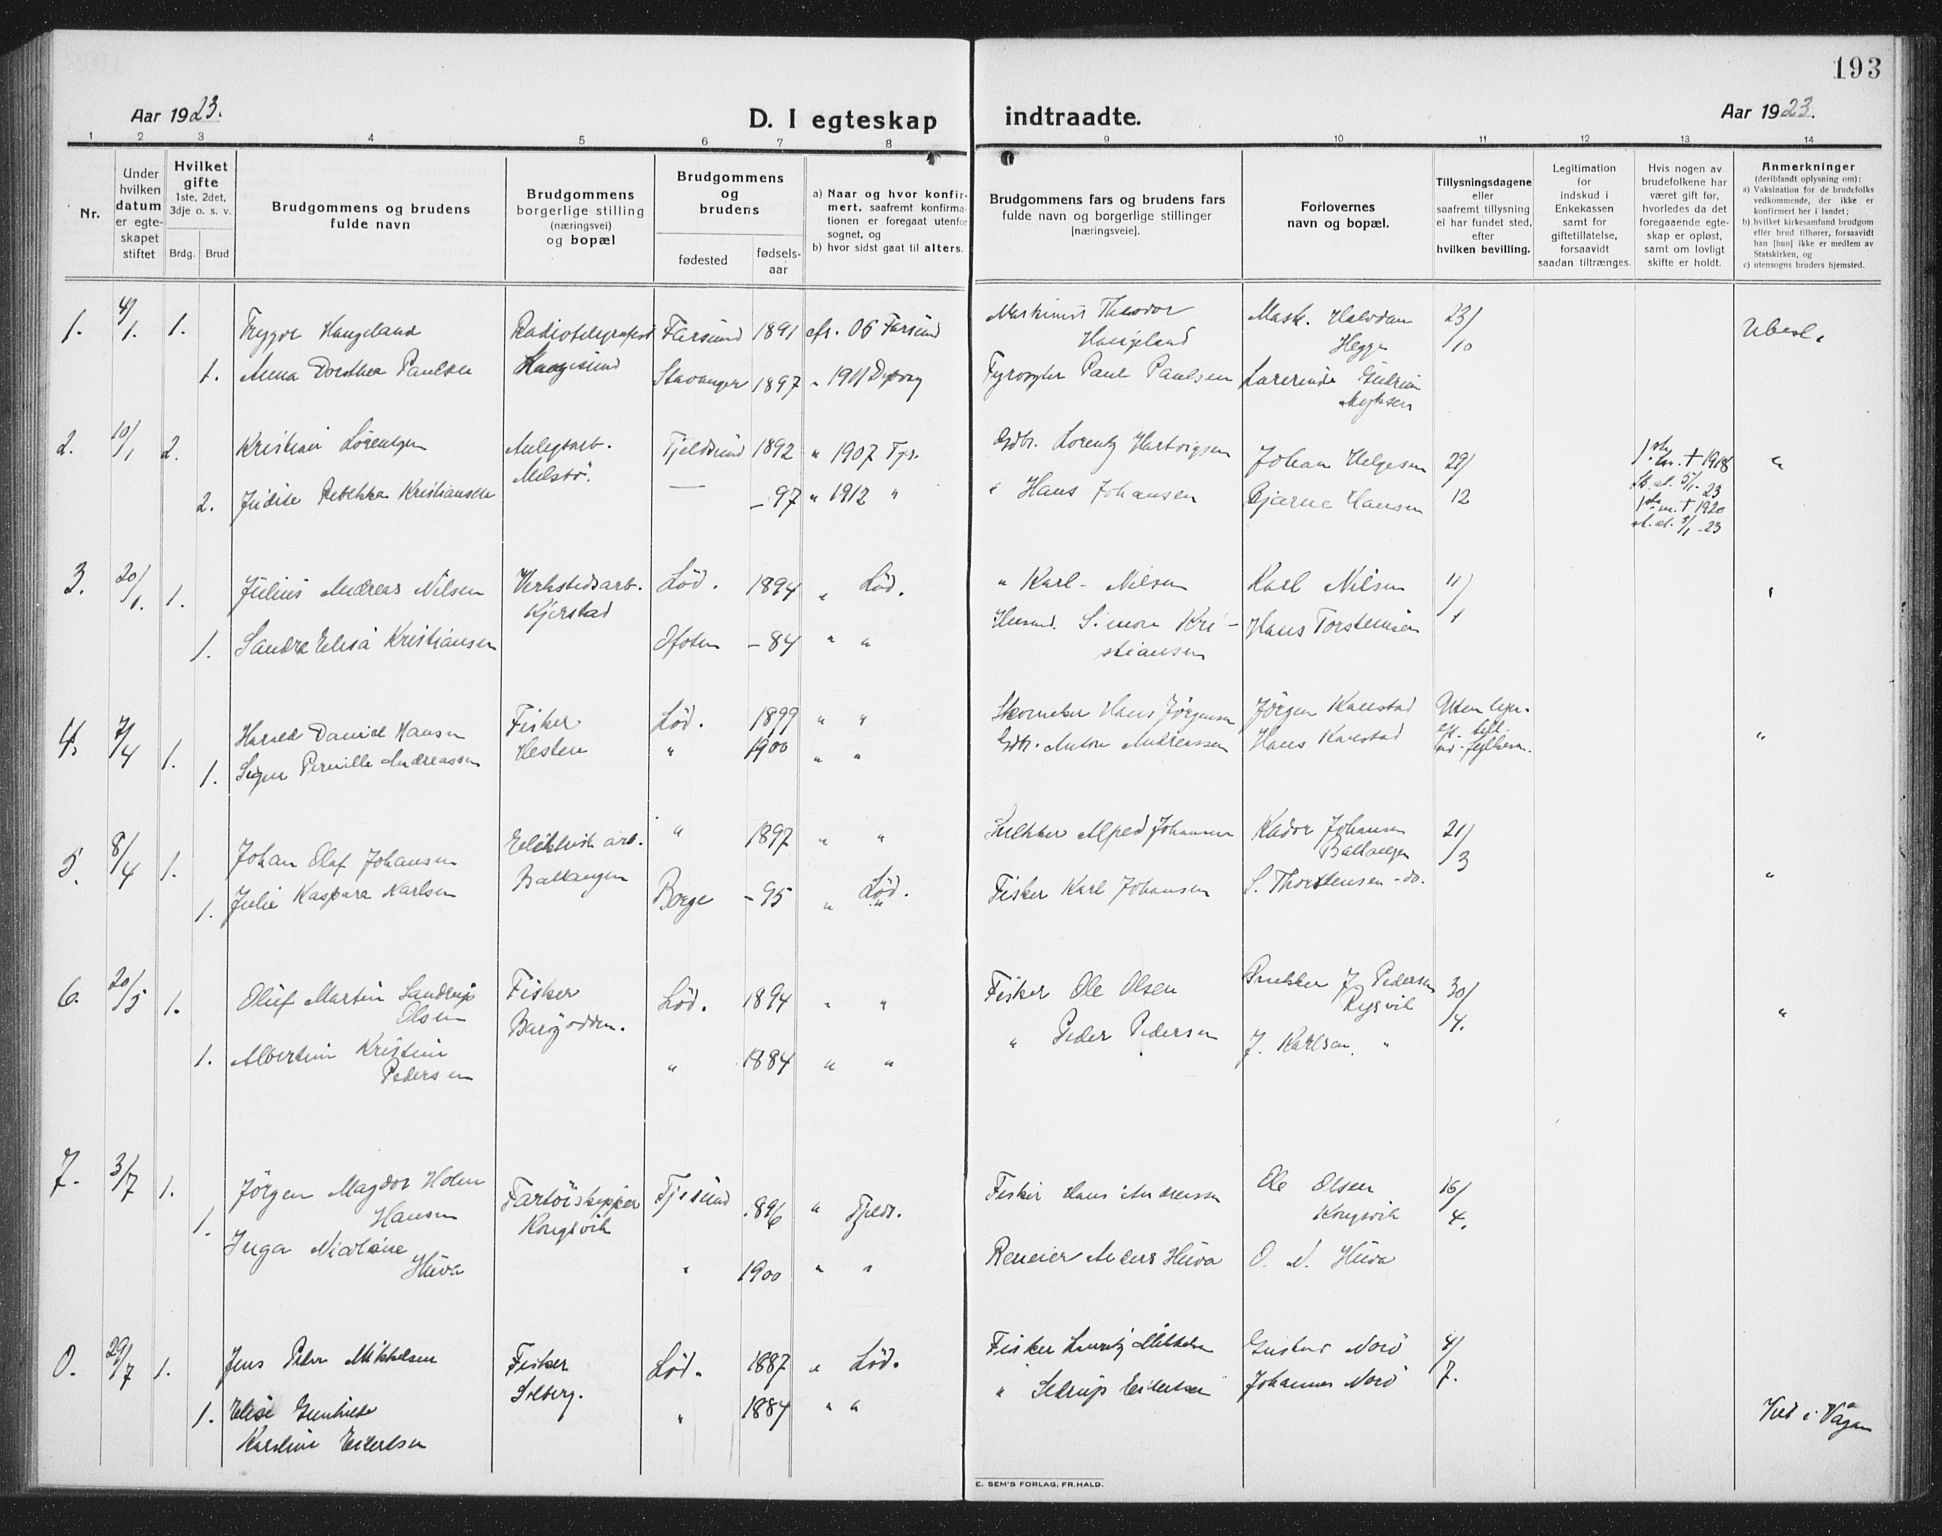 193
Aar 1923.
D. I egteskap
indtraadte.
Aar 1923.
1 2 3 4 5 6 7 8 9 10 11 12 13 14
Nr.
Under hvilken datum er egteskapet stiftet
Hvilket gifte 1ste, 2det, 3dje o. s. v.
Brdg. Brud
Brudgommens og brudens fulde navn
Brudgommens borgerlige stilling (næringsvei) og bopæl
Brudgommens og brudens
fødested
fødsels-aar
a) Naar og hvor konfirmert, saafremt konfirmationen er foregaat utenfor sognet, og
b) hvor sidst gaat til alters.
Brudgommens fars og brudens fars fulde navn og borgerlige stillinger [næringsveie].
Forlovernes navn og bopæl.
Tillysningsdagene eller saafremt tillysning ei har fundet sted, efter hvilken bevilling.
Legitimation for indskud i Enkekassen samt for giftetillatelse, forsaavidt saadan tiltrænges.
Hvis nogen av brudefolkene har været gift før, hvorledes da det foregaaende egteskap er opløst, samt om lovligt skifte er holdt.
Anmerkninger (deriblandt oplysning om):
a) Vaksination for de brudefolks vedkommende, der ikke er konfirmert her i landet;
b) hvilket kirkesamfund brudgom eller brud tilhører, forsaavidt han [hun] ikke er medlem av Statskirken, og
c) utensogns bruders hjemsted.
1. 4/1. 1. Trygve Haugeland Radiotelegrafist Farsund 1891 06 Farsund Maskinist Theodor Haugeland Mask. Halvdan Hegge 23/10
1. Anna Dorothea Paulsen Haugesund Stavanger 1897 " Fyrvogter Paul Paulsen Lærerinde Gudrun
2. 10/1 2. Kristian Lorentzen Anlegsarb. Tjeldsund 1892 " 1907 Tjs. Gdbr. Lorentz Hartvigsen Johan Helgesen 29/12 1ste hu. † 1918 "
2. Judite Rebekka Kristiansen — – 97 " 1912 " " Hans Johansen Bjarne Hansen 1ste m. † 1920
3. 20/1. 1. Julius Andreas Nilsen Verkstedsarb. Kjerstad Lød. 1894 " Lød. " Karl Nilsen Karl Nilsen 11/1 "
1. Sandra Elisa Kristiansen Ofoten – 84 " " Husmd. Simon Kristiansen Hans Torstensen
4. 7/4 1. Harald Daniel Hansen Fisker Lød. 1899 " " Skomaker Hans Jørgensen Jørgen Kanestad
1. Signe Pernille Andreassen Hesten " 1900 " " Gdbr. Anton Andreassen Hans Kanestad "
5. 8/4 1. Johan Olaf Johansen Elektrisk arb. " 1897 " " Snekker Alfred Johansen Kador Johansen Ballangen 21/3
1. Julie Kaspara Karlsen Ballangen Borge – 95 " Lød. Fisker Karl Johansen S. Thorstensen – do. "
6. 20/5 1. Oluf Martin Sandrup Olsen Fisker Barøyodden. Lød. 1894 " " Fisker Ole Olsen Snekker J. Pedersen 30/4.
1. Albertine Kristine Pedersen " 1884 " " " Peder Pedersen J. Karlsen " "
7. 3/7 1. Jörgen Magdor Holm Hansen Fartöiskipper Kongsvik Tjssund 1896 " Tjelds. Fisker Hans Andreassen Ole Olsen Kongsvik 16/4.
1. Inga Nicoline Huva " 1900 " " Anders Huva O. N. Huva
0. 29/7 1. Jens Peder Mikkelsen Fisker Solberg. Lød. 1887 " Lød. Fisker Mikkelsen Gustav Norö 4/7.
1. Elise Gunhilde Karoline Eilertsen " 1884 " " " Eilertsen Johannes Norö
Viet i Vågan